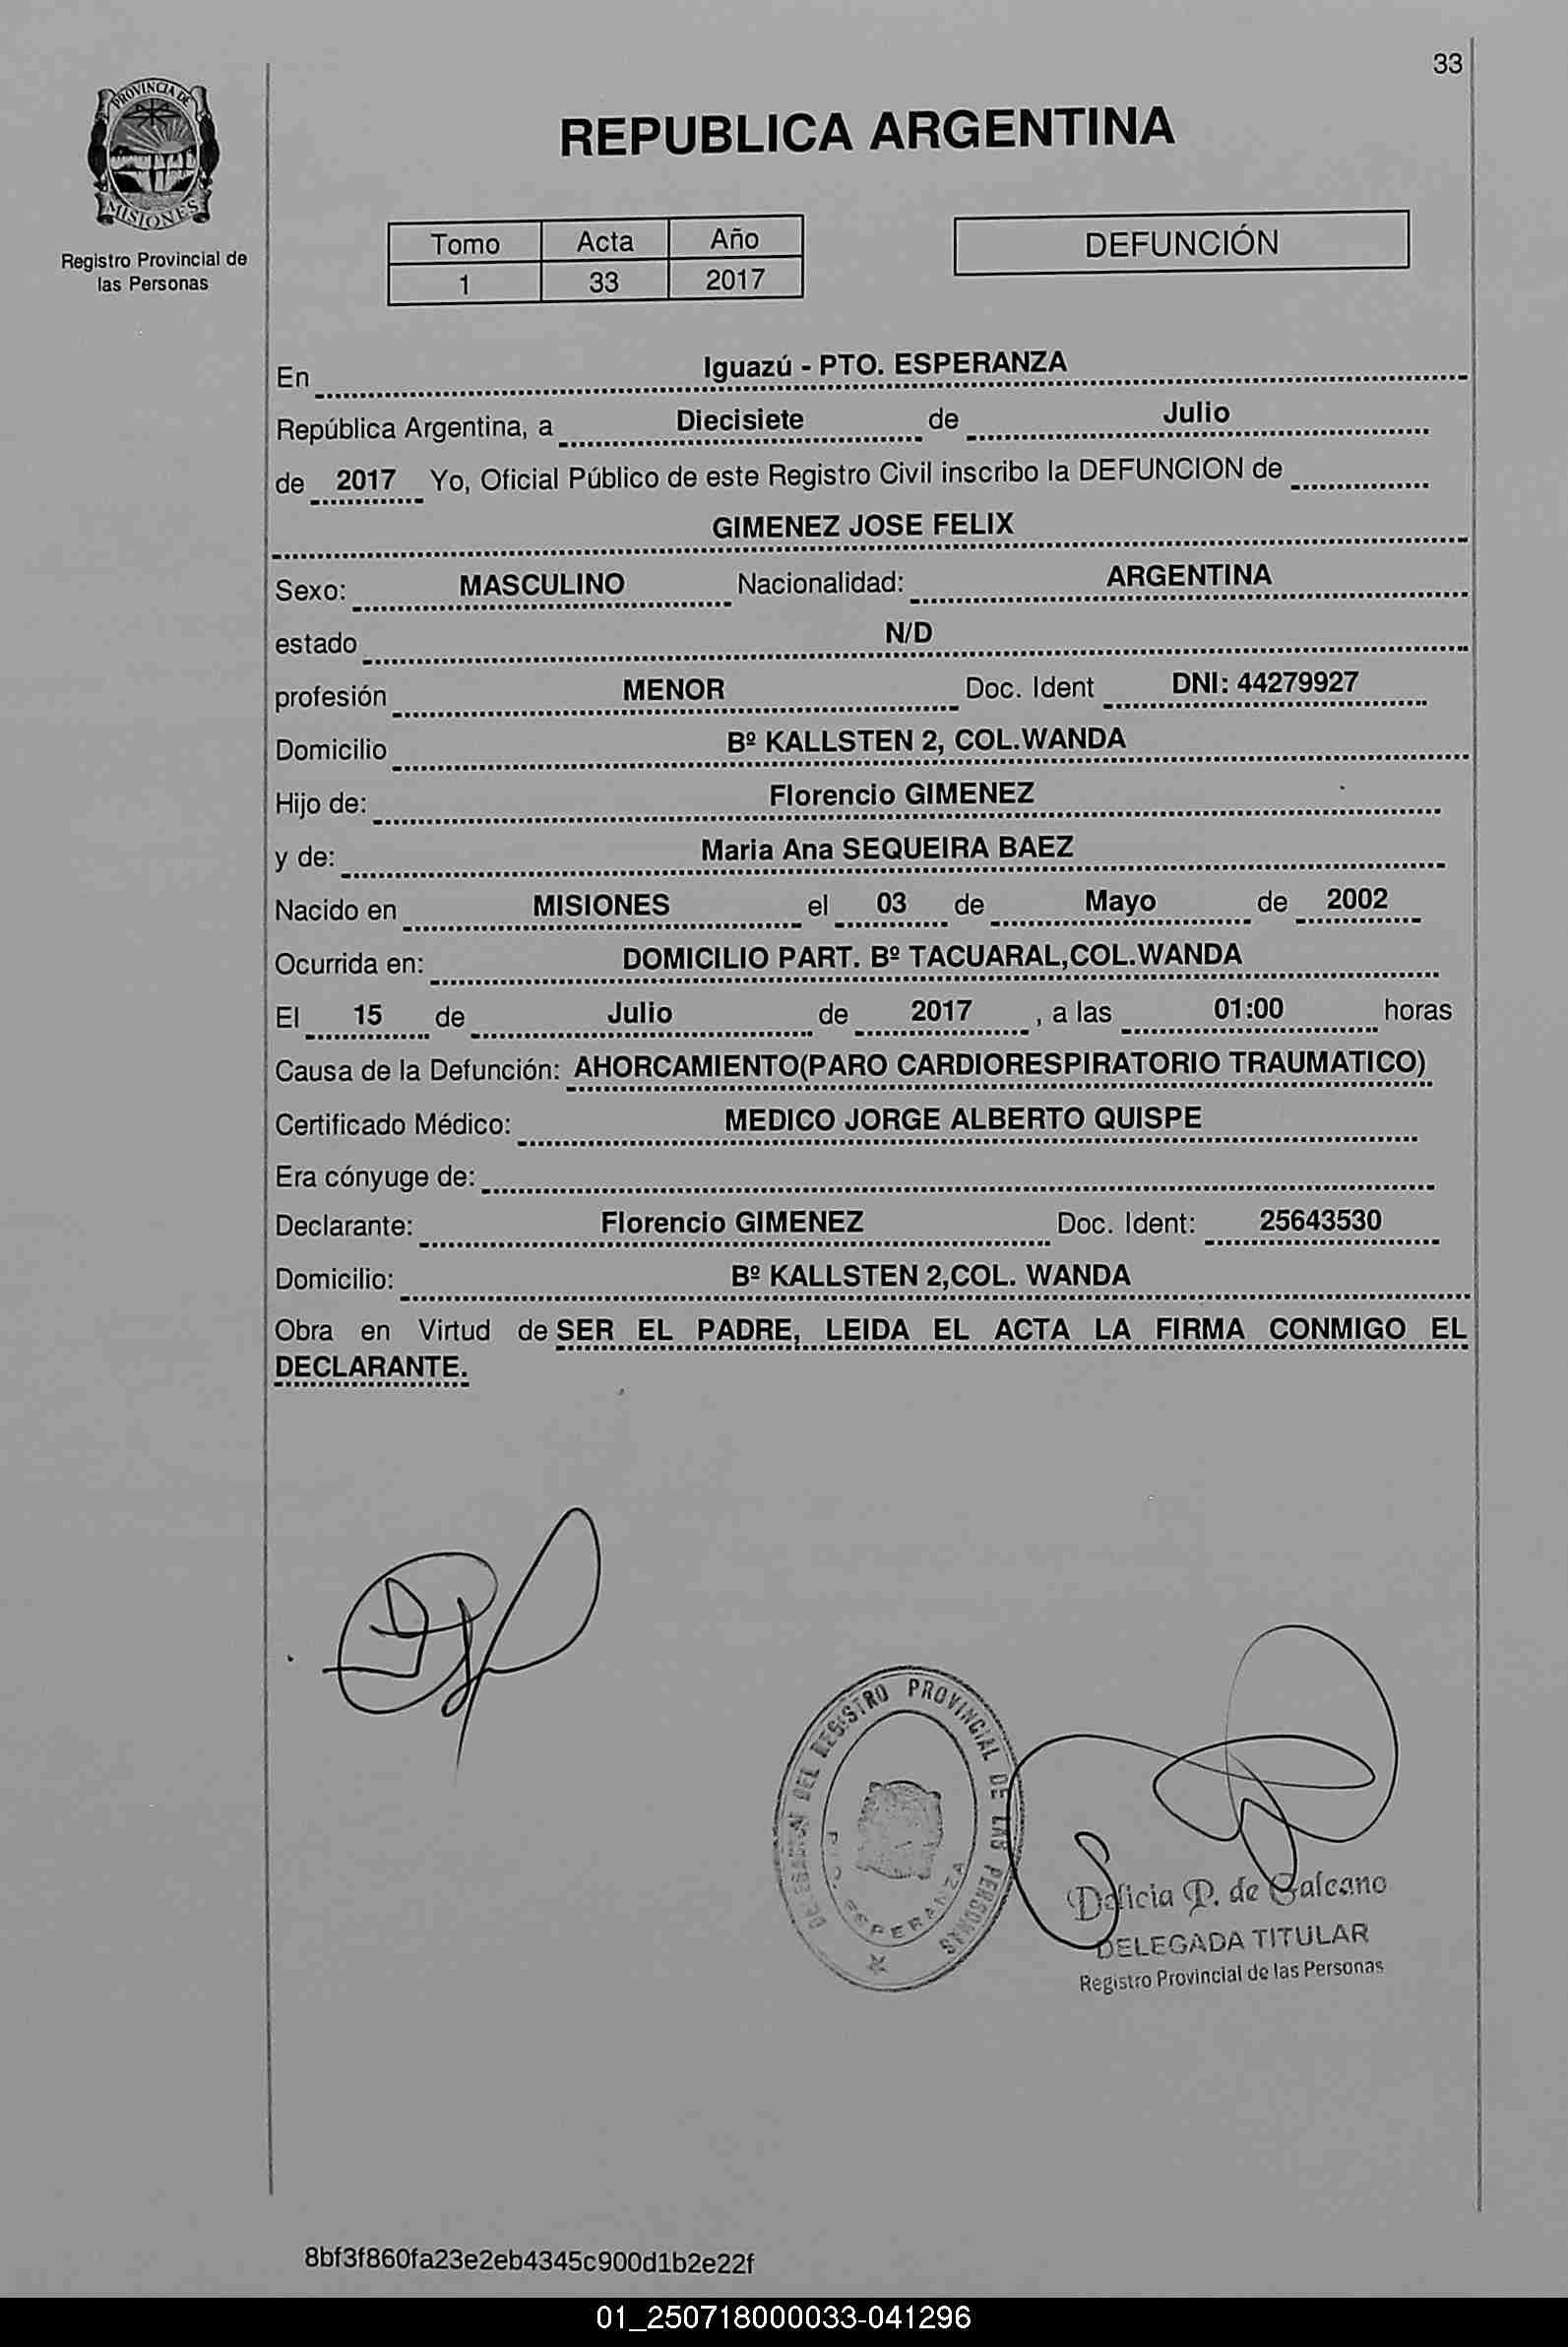 33
PROVINCIA DE
MISIONES
Registro Provincial de
las Personas
REPUBLICA ARGENTINA
Tomo Acta Año
1 33 2017
DEFUNCIÓN
En Iguazú - PTO. ESPERANZA
República Argentina, a Diecisiete de Julio
de 2017 Yo, Oficial Público de este Registro Civil inscribo la DEFUNCION de
GIMENEZ JOSE FELIX
Sexo: MASCULINO Nacionalidad: ARGENTINA
estado N/D
profesión MENOR Doc. Ident DNI: 44279927
Domicilio Bº KALLSTEN 2, COL.WANDA
Hijo de: Florencio GIMENEZ
y de: Maria Ana SEQUEIRA BAEZ
Nacido en MISIONES el 03 de Mayo de 2002
Ocurrida en: DOMICILIO PART. Bº TACUARAL,COL.WANDA
El 15 de Julio de 2017 , a las 01:00 horas
Causa de la Defunción: AHORCAMIENTO(PARO CARDIORESPIRATORIO TRAUMATICO)
Certificado Médico: MEDICO JORGE ALBERTO QUISPE
Era cónyuge de:
Declarante: Florencio GIMENEZ Doc. Ident: 25643530
Domicilio: Bº KALLSTEN 2,COL. WANDA
Obra en Virtud de SER EL PADRE, LEIDA EL ACTA LA FIRMA CONMIGO EL
DECLARANTE.
DELEGACION DEL REGISTRO PROVINCIAL DE LAS PERSONAS
PTO. ESPERANZA
Delicia P. de Galeano
DELEGADA TITULAR
Registro Provincial de las Personas
8bf3f860fa23e2eb4345c900d1b2e22f
01_250718000033-041296